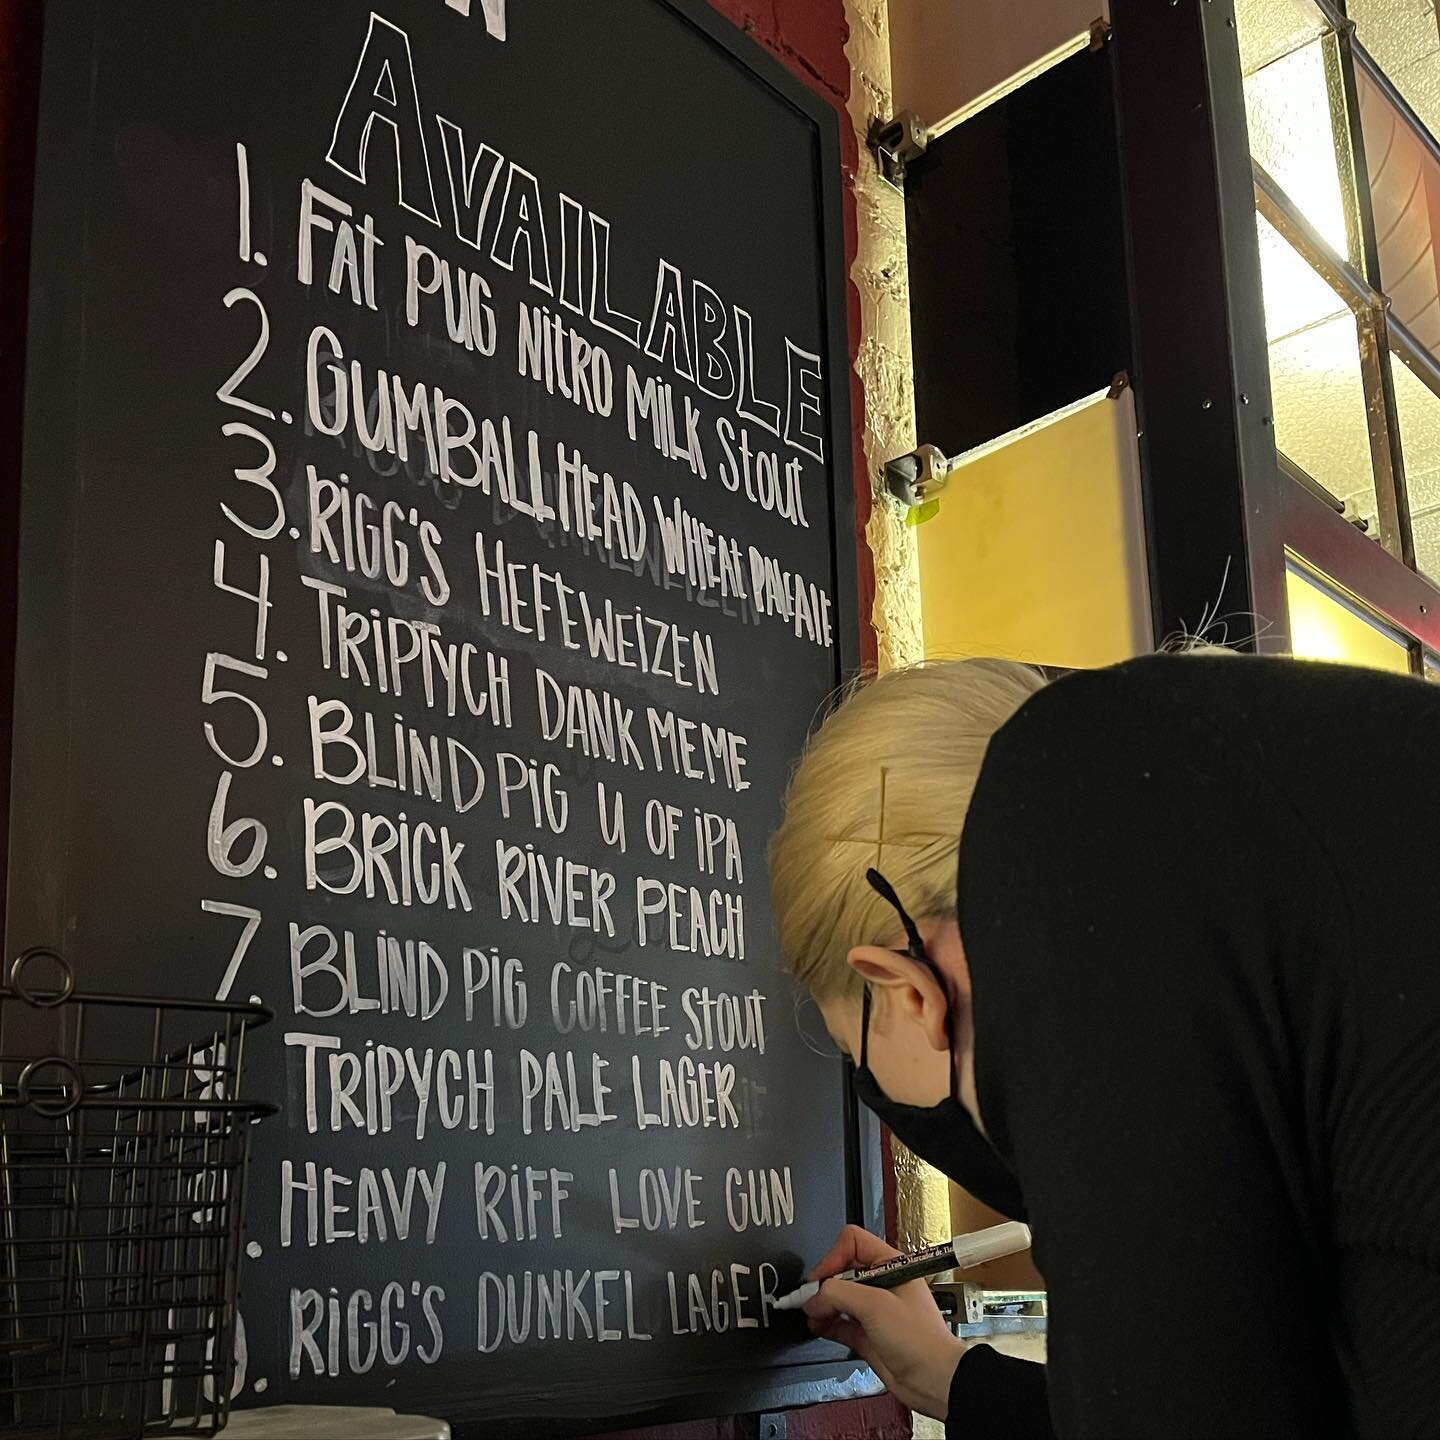 W
AVAILABLE
1. FAT PUG NITRO MILK STOUT
2. GUMBALLHEAD WHEAT PALE ALE
3. RIGG'S HEFEWEIZEN
4. TRIPTYCH DANK MEME
5. BLIND PIG U OF IPA
6. BRICK RIVER PEACH
7. BLIND PIG COFFEE STOUT
8. TRIPYCH PALE LAGER
HEAVY RIFF LOVE GUN
10. RIGG'S DUNKEL LAGER